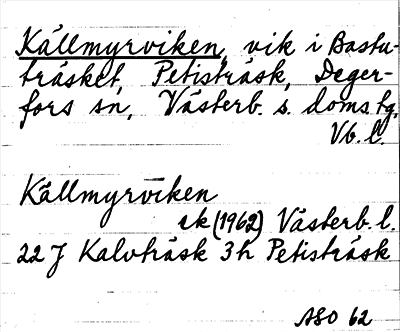 Källmyrviken, vik i Bastu-
träsket, Petisträsk, Deger-
fors sn, Västerb. s. doms.tg,
Vb. l.
Källmyrviken
ek (1962) Västerb. l.
22 J Kalvträsk 3h Petisträsk
ASO 62